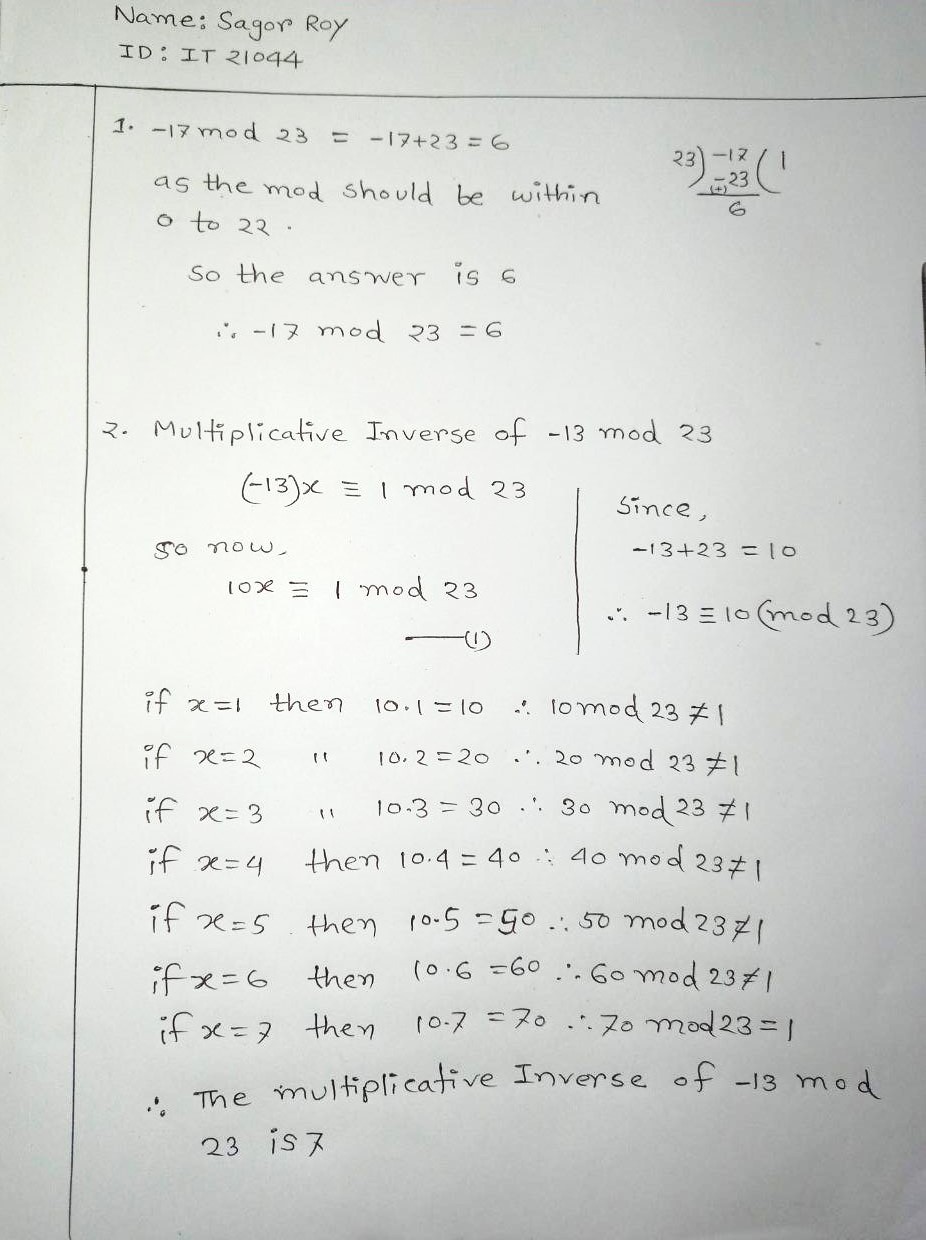 Name: Sagor Roy
ID: IT 21044
1. -17 mod 23 = -17+23 = 6
23) -17 ( 1
-23
(+)
6
as the mod should be within
0 to 22.
So the answer is 6
∴ -17 mod 23 = 6
2. Multiplicative Inverse of -13 mod 23
(-13)x ≡ 1 mod 23
so now,
10x ≡ 1 mod 23
—(1)
Since,
-13+23 = 10
∴ -13 ≡ 10 (mod 23)
if x=1 then 10.1 = 10 ∴ 10 mod 23 ≠ 1
if x=2 " 10.2 = 20 ∴ 20 mod 23 ≠ 1
if x=3 " 10.3 = 30 ∴ 30 mod 23 ≠ 1
if x=4 then 10.4 = 40 ∴ 40 mod 23 ≠ 1
if x=5 then 10.5 = 50 ∴ 50 mod 23 ≠ 1
if x=6 then 10.6 = 60 ∴ 60 mod 23 ≠ 1
if x=7 then 10.7 = 70 ∴ 70 mod 23 = 1
∴ The multiplicative Inverse of -13 mod
23 is 7